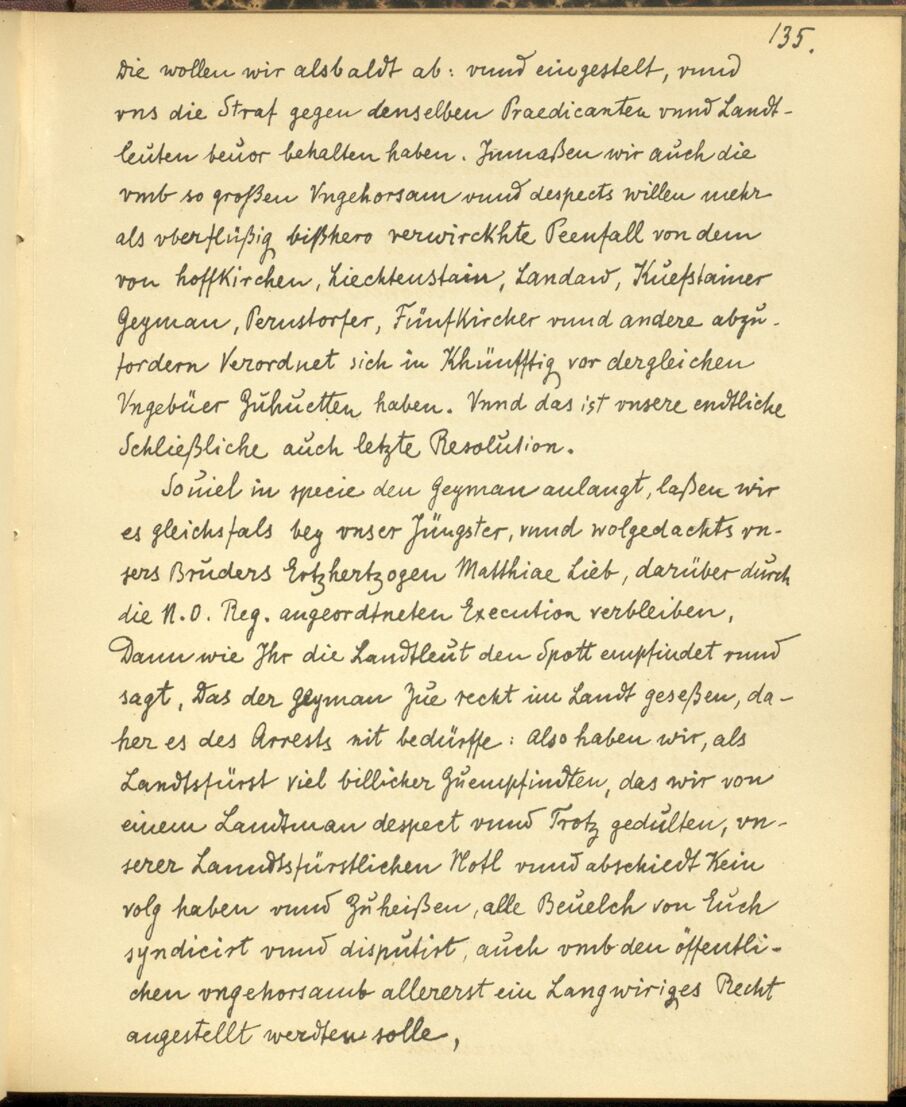 135.
Die wollen wir alsbaldt ab: vnnd eingestelt, vnnd
vns die Straf gegen denselben Praedicanten vnnd Landt-
leuten beuor behalten haben. Jnmaßen wir auch die
vmb so großen Vngehorsam vnnd despects willen mehr
als vberflüßig bißhero verwirckhte Peenfall von dem
von Hoffkirchen, Liechtenstain, Landaw, Kuefstainer
Geyman, Pernstorfer, Fünfkircher vnnd andere abzu-
fordern Verordnet sich in Khünfftig vor dergleichen
Vngebüer Zuhuetten haben. Vnnd das ist vnsere endtliche
Schließliche auch letzte Resolution.
Souiel in specie den Geyman anlangt, laßen wir
es gleichsfals bey vnser Jüngster, vnnd wolgedachts vn-
sers Bruders Ertzhertzogen Matthiae Lieb, darüber durch
die N.O. Reg. angeordtneten Execution verbleiben,
Dann wie Jhr die Landtleut den Spott empfindet vnnd
sagt, Das der Geyman Zue recht im Landt geseßen, da-
her es des Arrests nit bedürffe: Also haben wir, als
Landtsfürst viel billicher Zuempfindten, das wir von
einem Landtman despect vnnd Trotz gedulten, vn-
serer Lanndtsfürstlichen Notl vnnd abschiedt Kein
volg haben vnnd Zuheißen, alle Beuelch von Euch
syndicirt vnnd disputirt, auch vmb den öffentli-
chen vngehorsamb allererst ein Langwiriges Recht
angestellt werdten solle,